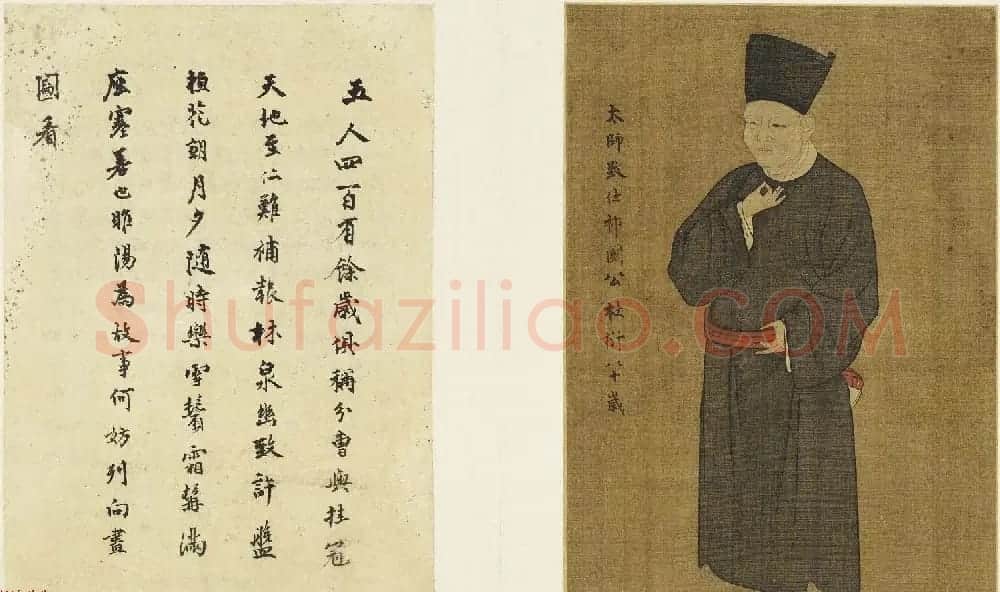 太師致仕祁國公杜衍八十歲
五人四百有餘歲俱稱分曹與挂冠
天地至仁難補報林泉幽致許盤
桓花朝月夕隨時樂雪鬢霜髯滿
座寒若也睢陽為故事何妨列向畫
圖看
Shufaziliao.COM